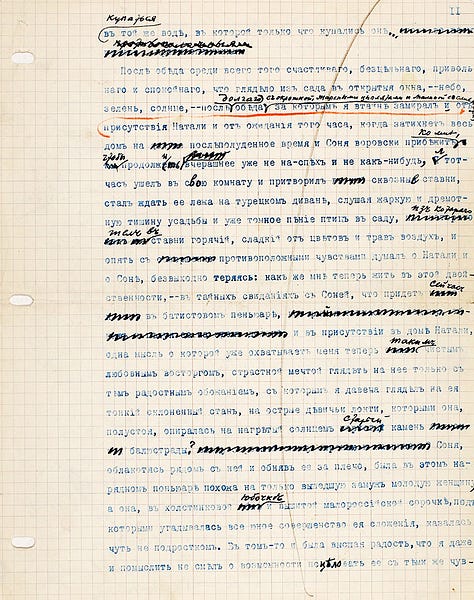 11
купаться
въ той же водѣ, въ которой только что купались онѣ,
Послѣ обѣда среди всего того счастливаго, безцѣльнаго, приволь-
наго и спокойнаго, что глядѣло изъ сада въ открытыя окна,--небо,
долгаго съ окрошкой, жареными цыплятами и малиной со
зелень, солнце,--послѣ обѣда, за которымъ я втайнѣ замиралъ и отъ
присутствія Натали и отъ ожиданія того часа, когда затихнетъ весь
ко мнѣ,
домъ на послѣполуденное время и Соня воровски прибѣжитъ
чтобъ
продолжить вчерашнее уже не на-спѣхъ и не какъ-нибудь, я тот-
часъ ушелъ въ свою комнату и притворилъ сквозныя ставни,
сталъ ждать ее лежа на турецкомъ диванѣ, слушая жаркую и дремот-
ную тишину усадьбы и уже томное пѣніе птицъ въ саду, изъ котораго
шелъ въ ставни горячій, сладкій отъ цвѣтовъ и травъ воздухъ, и
опять съ противоположными чувствами думалъ о Натали и
о Сонѣ, безвыходно теряясь: какъ же мнѣ теперь жить въ этой двой-
сейчасъ
ственности,--въ тайныхъ свиданіяхъ съ Соней, что придетъ
въ батистовомъ пеньюарѣ,
и въ присутствіи въ домѣ Натали,
такимъ
одна мысль о которой уже охватываетъ меня теперь чистымъ
любовнымъ восторгомъ, страстной мечтой глядѣть на нее только съ
тѣмъ радостнымъ обожаніемъ, съ которымъ я давеча глядѣлъ на ея
тонкій склоненный станъ, на острые дѣвичьи локти, которыми она,
старый
полустоя, опиралась на нагрѣтый солнцемъ камень
балюстрады? Соня,
облокотясь рядомъ съ ней и обнявъ ее за плечо, была въ этомъ на-
рядномъ пеньюарѣ похожа на только вышедшую замужъ молодую женщину
юбочкѣ
а она, въ холстинковой и вышитой малороссійской сорочкѣ, подъ
которыми угадывалась все юное совершенство ея сложенія, казалась
чуть не подросткомъ. Въ томъ-то и была высшая радость, что я даже
и помыслить не смѣлъ о возможности поцѣловать ее съ тѣми же чув-